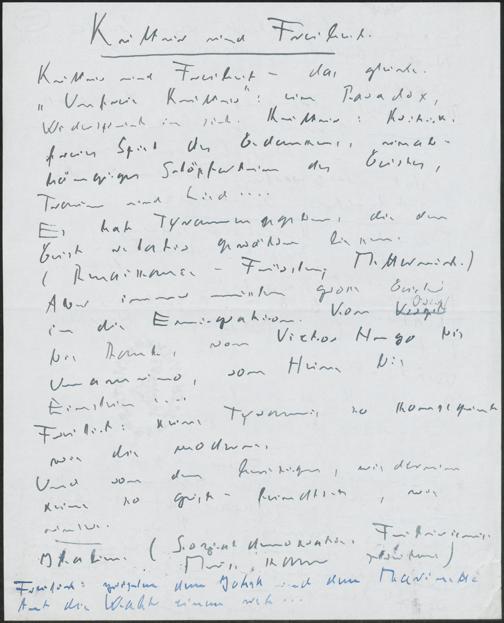 Kultur und Freiheit.
Kultur und Freiheit – das gleiche.
"Unfreie Kultur": ein Paradox,
Widerspruch in sich. Kultur: Kritik,
freies Spiel des Gedankens, unab-
hängiges Schöpfertum des Geistes,
Traum und Lied ....
Es hat Tyrannen gegeben, die den
Geist relativ gewähren liessen.
(Renaissance – Fürsten, Metternich.)
Aber immer mussten grosse Geister
in die Emigration. Von Ovid
bis Dante, von Victor Hugo bis
Unamuno, von Heine bis
Einstein ....
Freilich: keine Tyrannis so konsequent
wie die moderne.
Und von den heutigen, wiederum
keine so geist-feindlich, wie
Stalin. (Sozialdemokratie.
Freilich: zwischen dem und dem
hat die Wahl einen